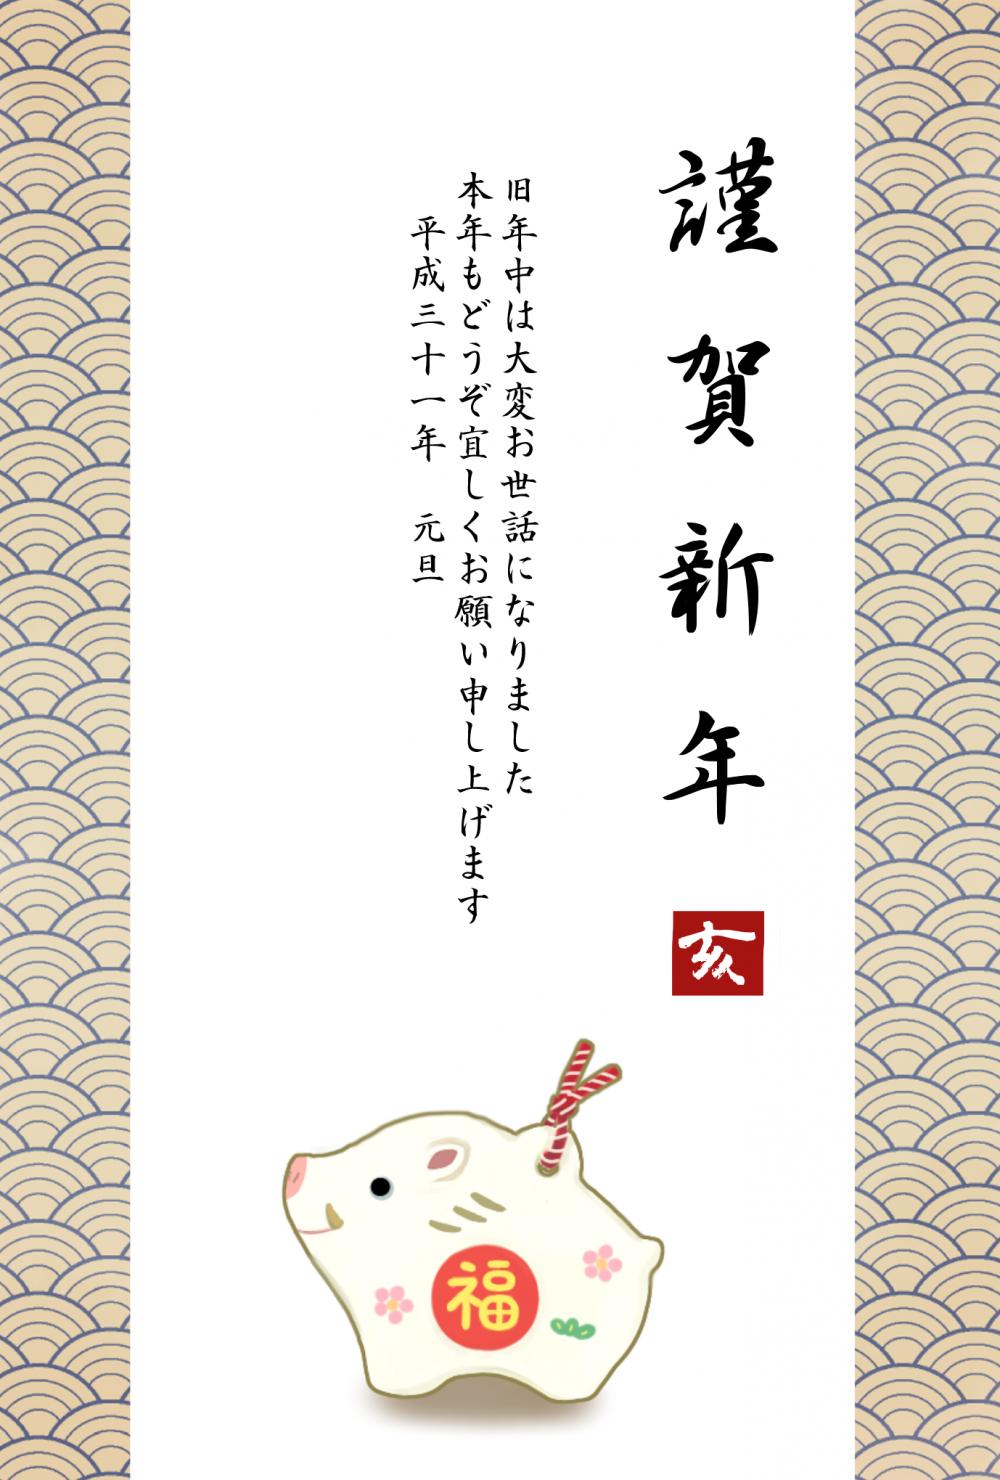 謹賀新年
亥
旧年中は大変お世話になりました
本年もどうぞ宜しくお願い申し上げます
平成三十一年　元旦
福